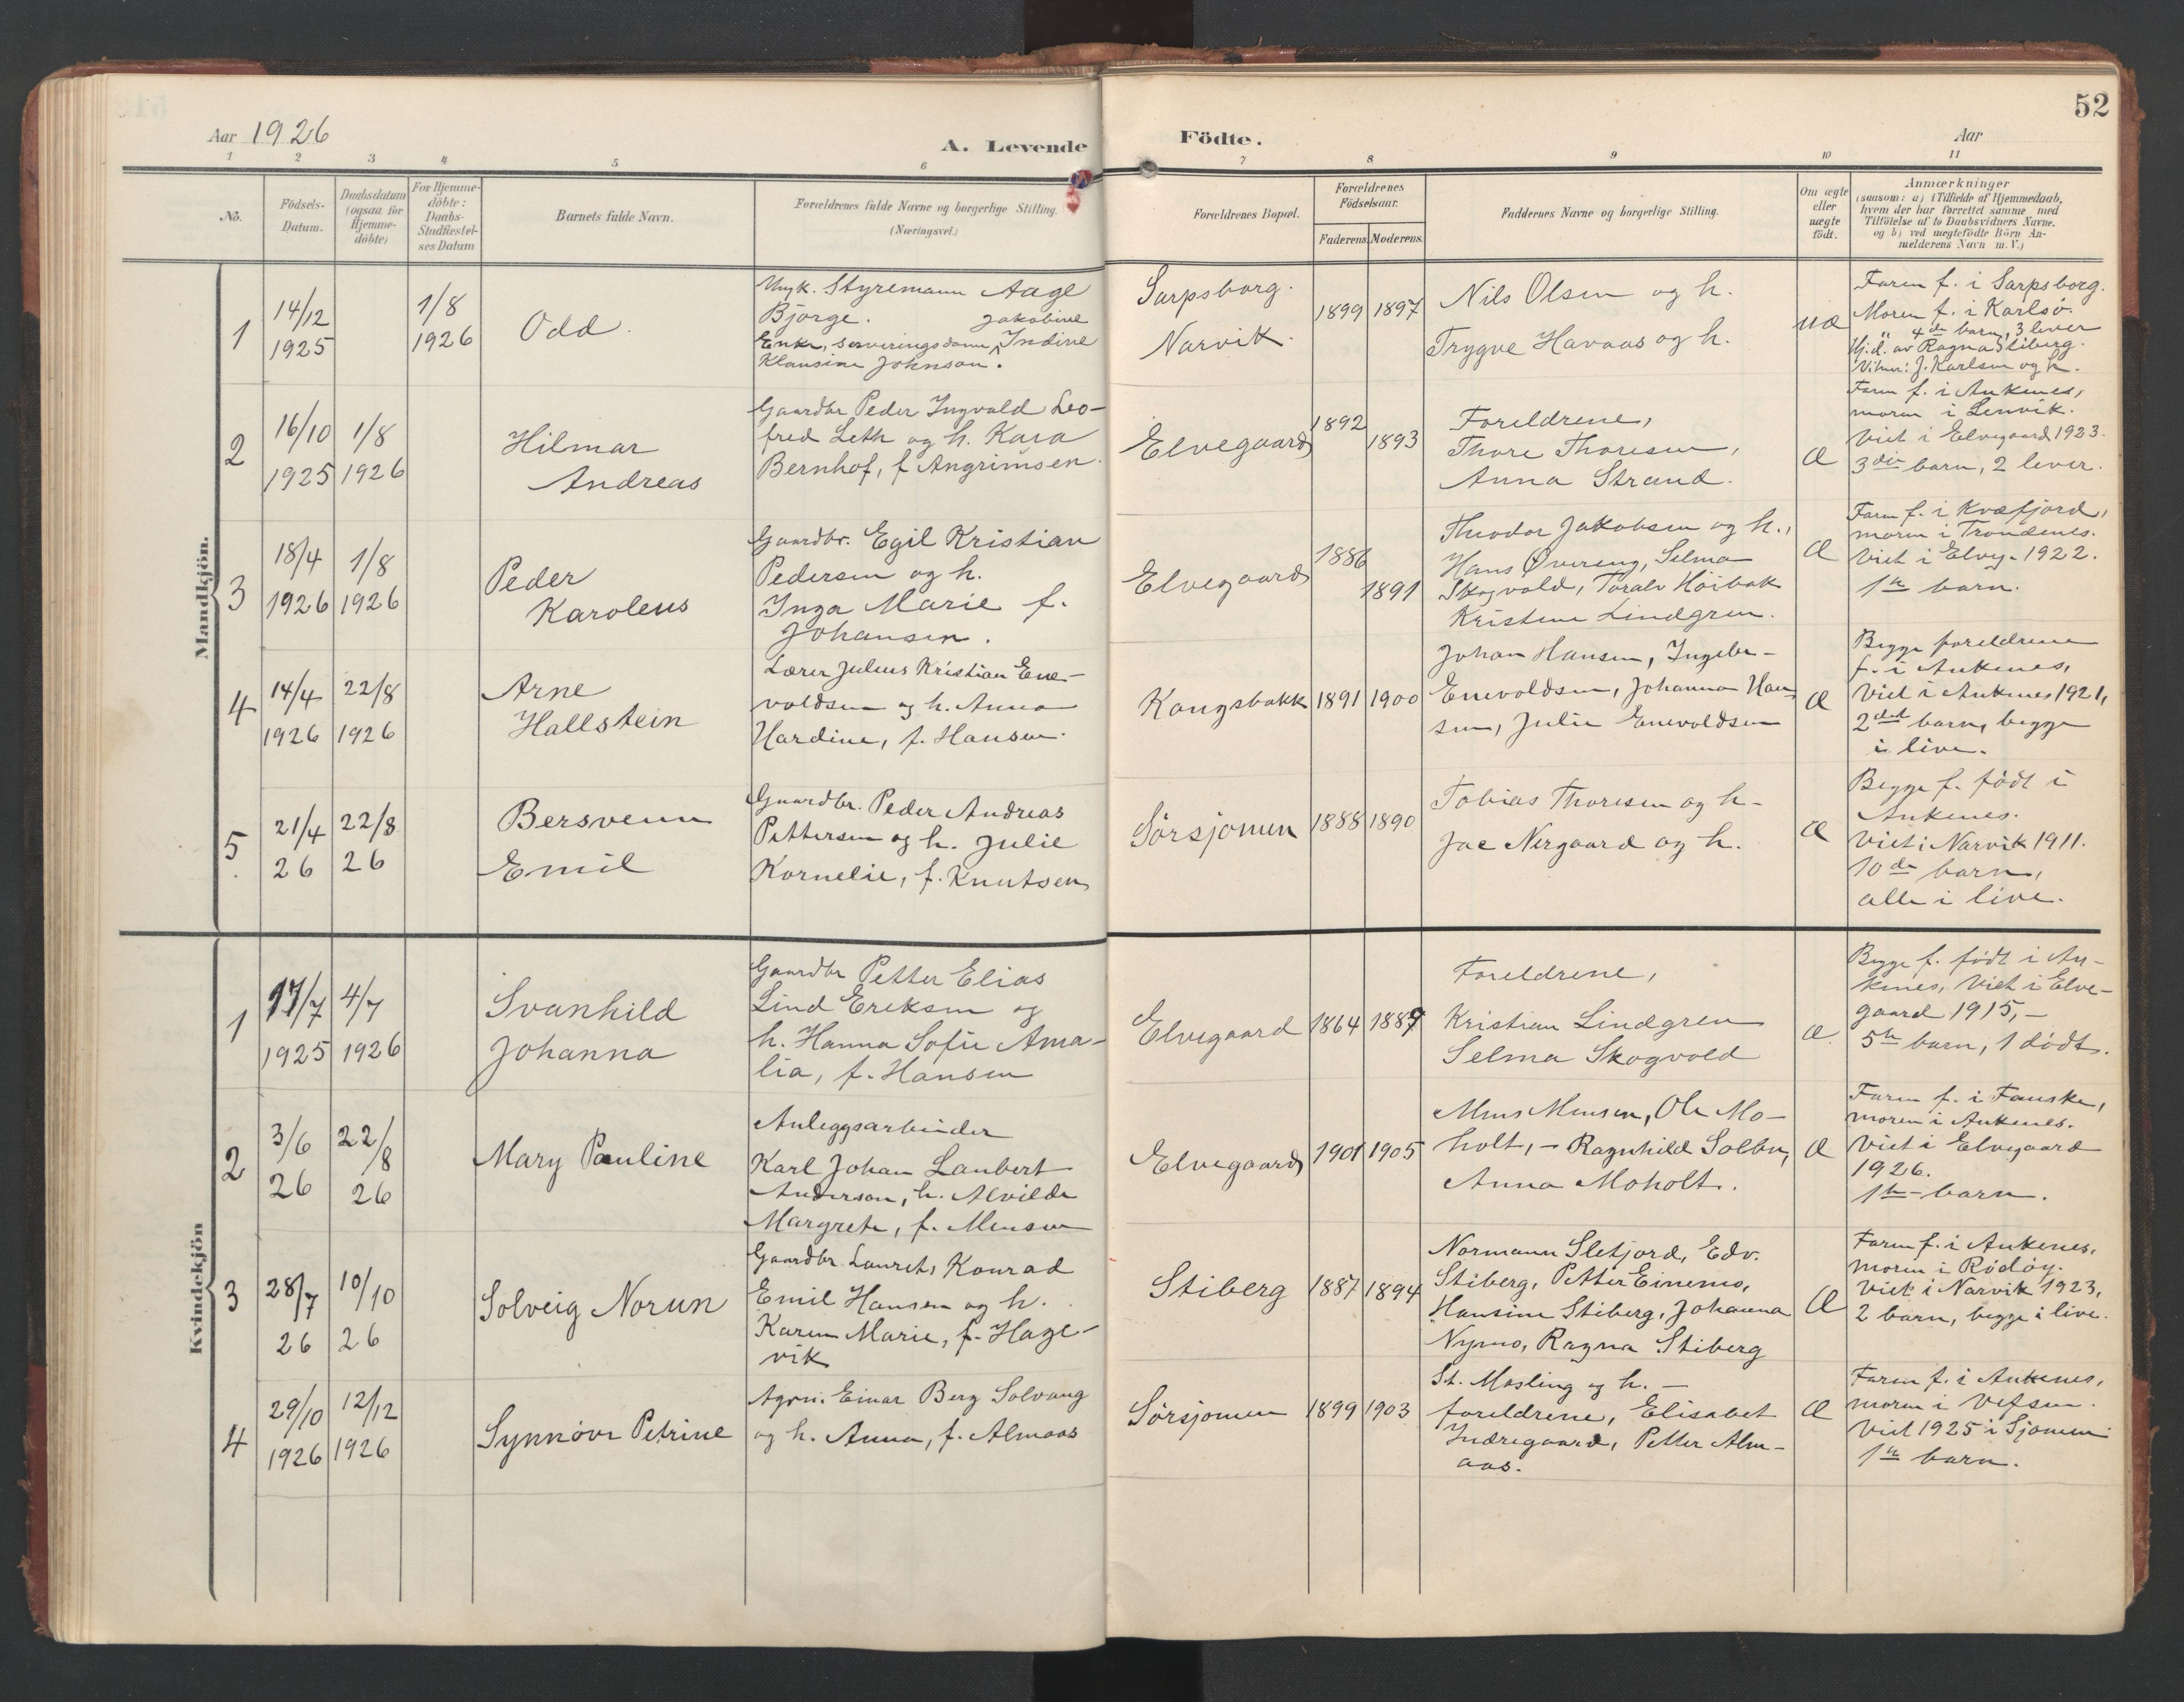 52
Aar 1926
A. Levende
Födte.
Aar
1 2 3 4 5 6 7 8 9 10 11
No.
Födsels-
Datum.
Daabsdatum
(ogsaa for
Hjemme-
döbte)
For Hjemme-
döbte:
Daabs-
Stadfæstel-
ses Datum
Barnets fulde Navn.
Forældrenes fulde Navne og borgerlige Stilling.
(Næringsvei.)
Forældrenes Bopæl.
Forældrenes
Födselsaar.
Faderens. Moderens.
Faddernes Navne og borgerlige Stilling.
Om ægte
eller
uægte
födt.
Anmærkninger
(saasom: a) i Tilfælde af Hjemmedaab,
hvem der har forrettet samme med
Tilföielse af to Daabsvidners Navne.
og b) ved uægtefödte Börn An-
melderens Navn m. V.)
Mandkjön.
1
14/12
1925
1/8
1926
Odd.
Ungk. Styremann Aage
Bjørge. Jakobine
Enke, serveringsdame Indine
Klausine Johnson.
Sarpsborg.
Narvik.
1899 1897
Nils Olsen og h.
Trygve Havaas og h.
uæ
Faren f. i Sarpsborg.
Moren f. i Karlsö.
" 4de barn, 3 lever
Hj.d. av Ragna Stiberg.
Vitner: J. Karlsen og h.
2
16/10
1925
1/8
1926
Hilmar
Andreas
Gaardbr Peder Ingvald Leo-
fred Leth og h. Kara
Bernhof, f Angrimsen.
Elvegaard
1892
1893
Foreldrene,
Thore Thoresen,
Anna Strand.
Æ
Faren f. i Ankenes,
moren i Lenvik.
Viet i Elvegaard 1923.
3die barn, 2 lever.
3
18/4
1926
1/8
1926
Peder
Karoleus
Gaardbr. Egil Kristian
Pedersen og h.
Inga Marie f.
Johansen.
Elvegaard
1886
1891
Theodor Jakobsen og h.,
Hans Øvereng, Selma
Skogvold, Toralv Höibak
Kristine Lindgren.
Æ
Faren f. i Kvæfjord,
moren i Trondenes.
Viet i Elveg. 1922.
1ste barn.
4
14/4
1926
22/8
1926
Arne
Hallstein
Lærer Julius Kristian Ene-
voldsen og h. Anna
Hardine, f. Hansen.
Kongsbakk
1891 1900
Johan Hansen, Ingebr-
Enevoldsen, Johanna Han
sen, Julie Enevoldsen
Æ
Begge foreldrene
f. i Ankenes,
Viet i Ankenes 1921,
2det barn, begge
i live.
5
21/4
26
22/8
26
Bersvenn
Emil
Gaardbr. Peder Andreas
Pettersen og h. Julie
Kornelie, f. Knutsen
Sörsjomen
1888 1890
Tobias Thoresen og h-
Jac Nergaard og h.
Æ
Begge f. födt i
Ankenes.
Viet i Narvik 1911.
10de barn,
alle i live.
Kvindekjön
1
17/7
1925
4/7
1926
Svanhild
Johanna
Gaardbr Petter Elias
Lind Eriksen og
h. Hanna Sofie Ama-
lia, f. Hansen
Elvegaard
1864 1889
Foreldrene,
Kristian Lindgren
Selma Skogvold
Æ.
Begge f. födt i An-
kenes, Viet i Elve-
gaard 1915,-
5te barn, 1 dödt.
2
3/6
26
22/8
26
Mary Pauline
Anleggsarbeider
Karl Johan Laubert
Anderson, h. Alvilde
Margrete, f. Monsen
Elvegaard
1901 1905
Mons Monsen, Ole Mo-
holt, - Ragnhild Solbu,
Anna Moholt.
Æ
Faren f. i Fauske,
moren i Ankenes.
Viet i Elvegaard
1926.
1te- barn.
3
28/7
26
10/10
26
Solveig Norun
Gaardbr Laurits Konrad
Emil Hansen og h.
Karen Marie, f. Hage-
vik
Stiberg
1887 1894
Normann Sletjord, Edv.
Stiberg, Petter Einemo,
Hansine Stiberg, Johanna
Nymo, Ragna Stiberg
Æ
Faren f. i Ankenes,
moren i Rödöy.
Viet i Narvik 1923,
2 barn, begge i live.
4
29/10
1926
12/12
1926
Synnöve Petrine
Agron. Einar Berg Solvang
og h. Anna, f. Almaas
Sörsjomen
1899 1903
St. Mosling og h. -
foreldrene, Elisabet
Indregaard, Petter Alm-
aas.
Æ
Faren f. i Ankenes,
moren i Vefsen.
Viet 1925 i Sjomen
1te barn.